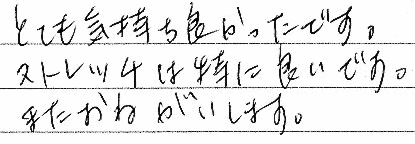 とても気持ち良かったです。
ストレッチは特に良いです。
またおねがいします。